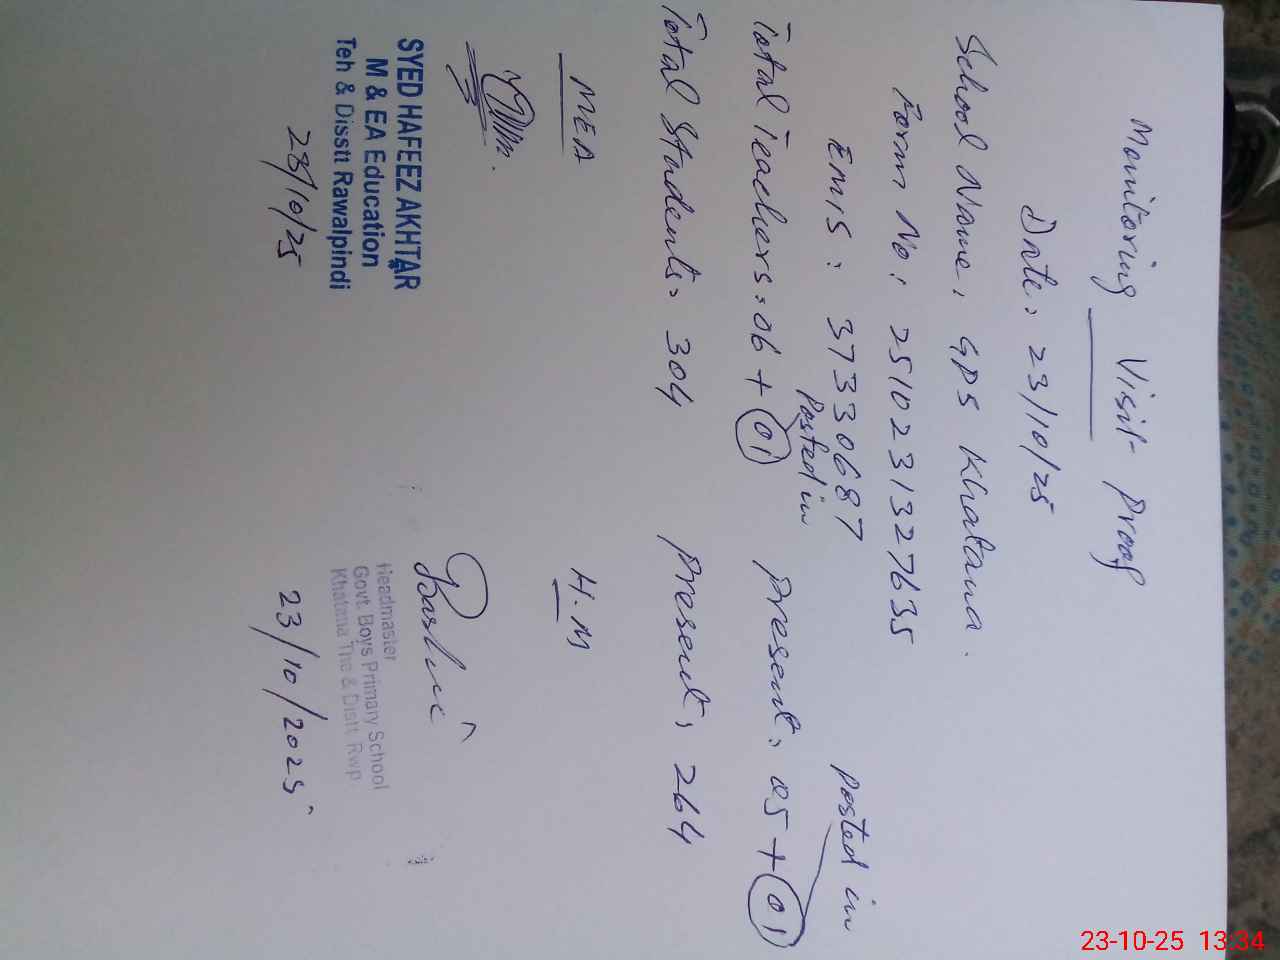 Monitoring Visit Proof
Date: 23/10/25
School Name: GPS Khatana.
Form No: 2510231327635
EMIS: 37330687
Posted in
Posted in
Total Teachers: 06 + 01
Present: 05 + 01
Total Students: 304
Present: 264
MEA
H.M
SYED HAFEEZ AKHTAR
M & EA Education
Teh & Disstt Rawalpindi
23/10/25
Headmaster
Govt. Boys Primary School
Khatana The & Distt Rwp
23/10/2025
23-10-25 13:34